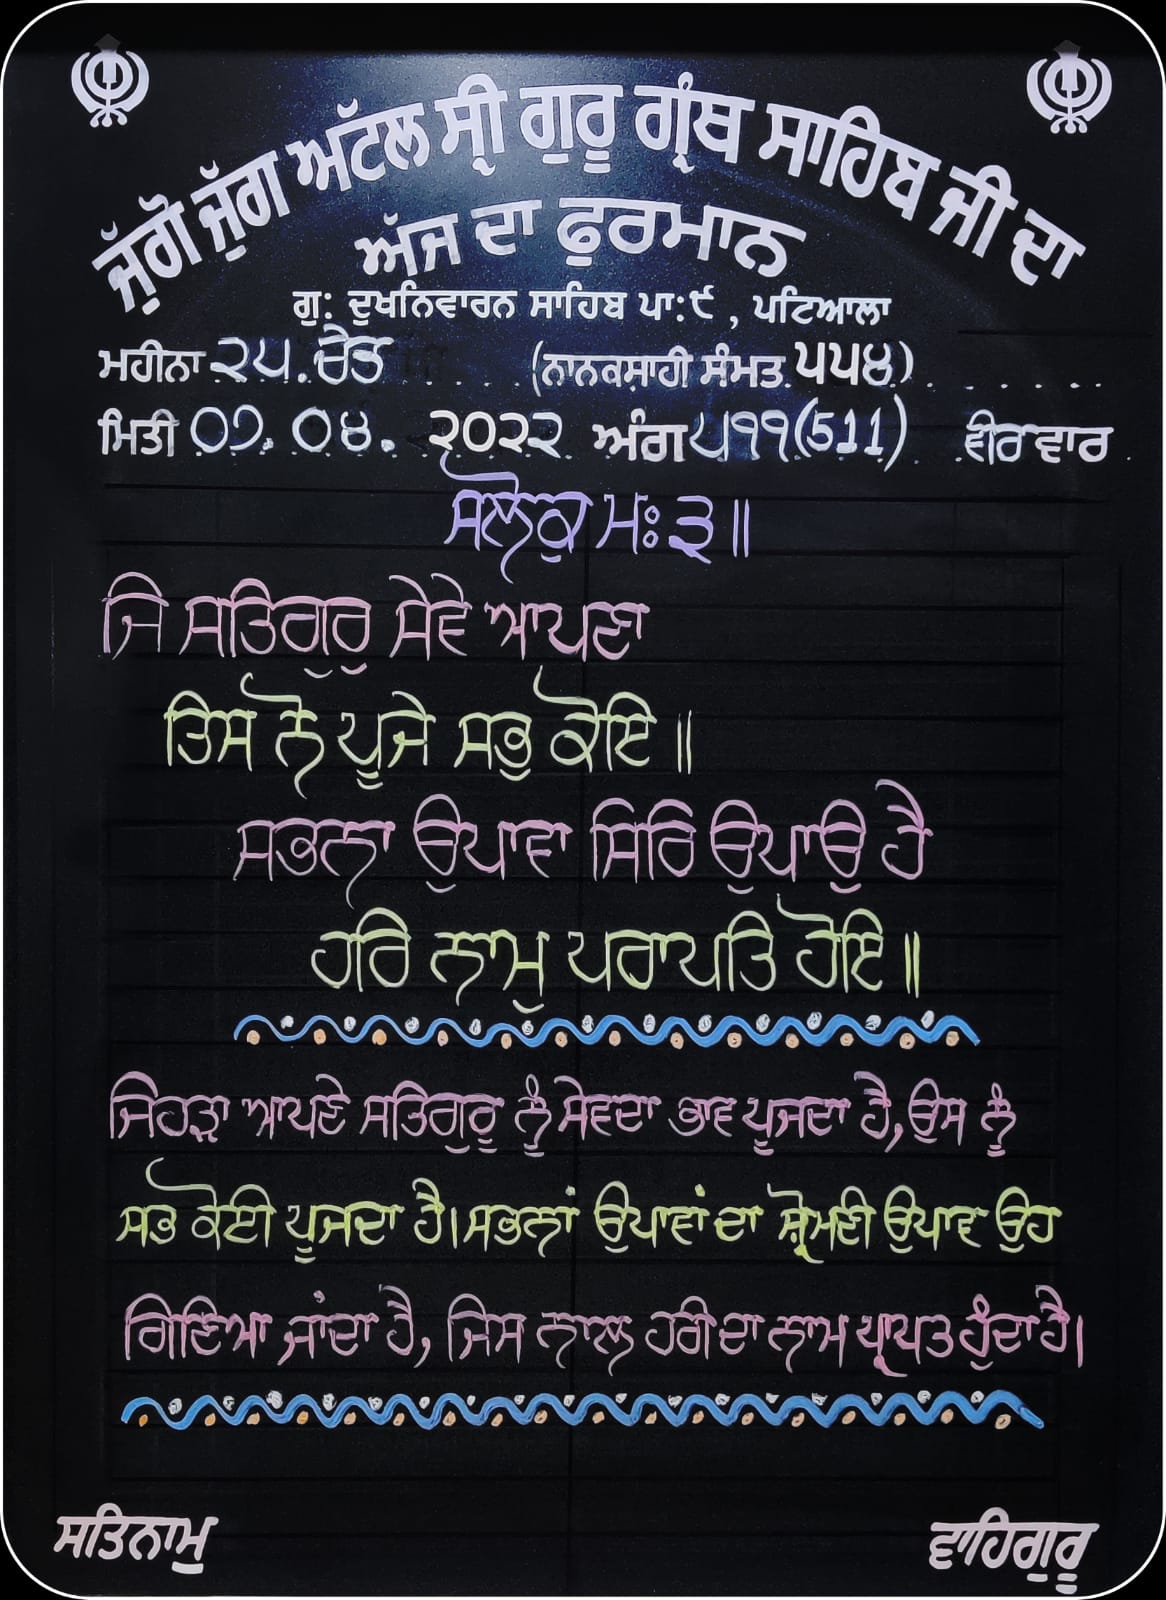 ਜੁੱਗੋ ਜੁੱਗ ਅਟੱਲ ਸ੍ਰੀ ਗੁਰੂ ਗ੍ਰੰਥ ਸਾਹਿਬ ਜੀ ਦਾ
ਅੱਜ ਦਾ ਫੁਰਮਾਨ
ਗੁ: ਦੁਖਨਿਵਾਰਨ ਸਾਹਿਬ ਪਾ:੯ , ਪਟਿਆਲਾ
ਮਹੀਨਾ ੨੫. ਚੇਤ (ਨਾਨਕਸ਼ਾਹੀ ਸੰਮਤ ੫੫੪)
ਮਿਤੀ ੦੭. ੦੪. ੨੦੨੨ ਅੰਗ ੫੧੧(511) ਵੀਰਵਾਰ
ਸਲੋਕੁ ਮਃ ੩ ॥
ਜਿ ਸਤਿਗੁਰੁ ਸੇਵੇ ਆਪਣਾ
ਤਿਸ ਨੋ ਪੂਜੇ ਸਭੁ ਕੋਇ ॥
ਸਭਨਾ ਉਪਾਵਾ ਸਿਰਿ ਉਪਾਉ ਹੈ
ਹਰਿ ਨਾਮੁ ਪਰਾਪਤਿ ਹੋਇ ॥
ਜਿਹੜਾ ਆਪਣੇ ਸਤਿਗੁਰੂ ਨੂੰ ਸੇਵਦਾ ਭਾਵ ਪੂਜਦਾ ਹੈ, ਉਸ ਨੂੰ
ਸਭ ਕੋਈ ਪੂਜਦਾ ਹੈ। ਸਭਨਾਂ ਉਪਾਵਾਂ ਦਾ ਸ਼੍ਰੋਮਣੀ ਉਪਾਵ ਉਹ
ਗਿਣਿਆ ਜਾਂਦਾ ਹੈ, ਜਿਸ ਨਾਲ ਹਰੀ ਦਾ ਨਾਮ ਪ੍ਰਾਪਤ ਹੁੰਦਾ ਹੈ।
ਸਤਿਨਾਮੁ ਵਾਹਿਗੁਰੂ